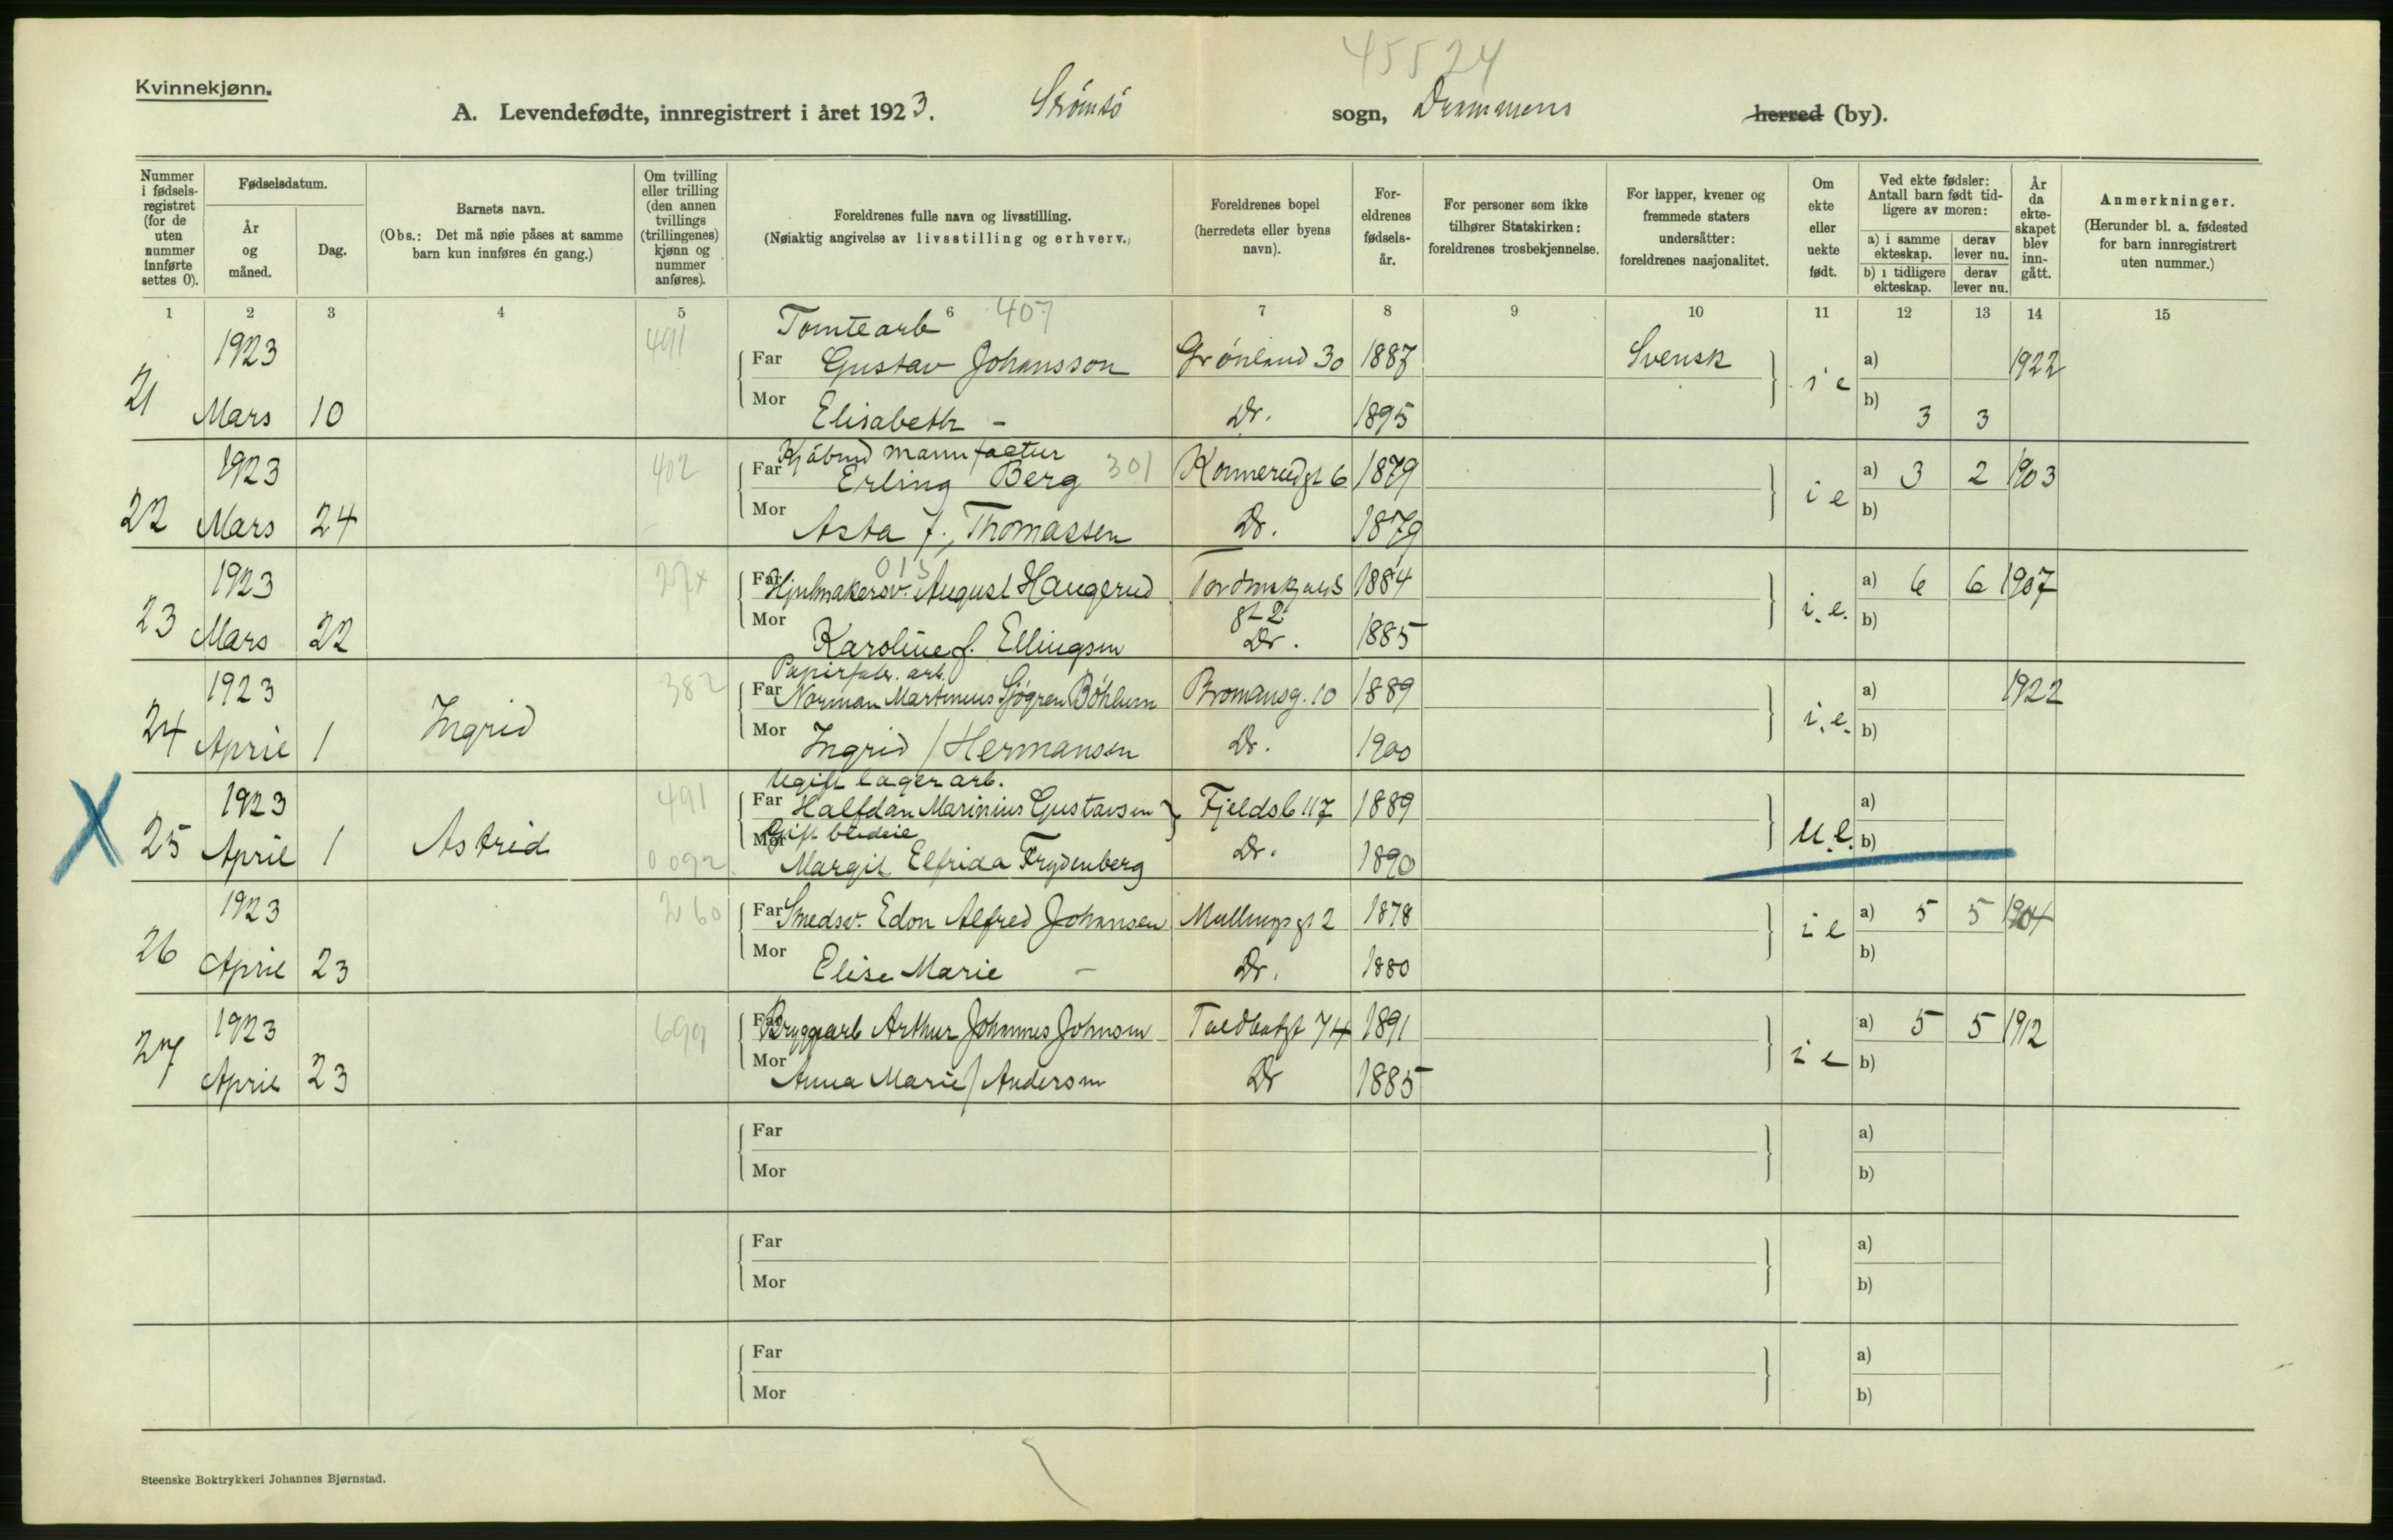 45524
Kvinnekjønn.
A. Levendefødte, innregistrert i året 1923. Strømsö sogn, Drammens herred (by).
Nummer i fødsels-registret (for de uten nummer innførte settes 0).
Fødselsdatum.
År og måned.
Dag.
Barnets navn.
(Obs.: Det må nøie påses at samme barn kun innføres én gang.)
Om tvilling eller trilling (den annen tvillings (trillingenes) kjønn og nummer anføres).
Foreldrenes fulle navn og livsstilling.
(Nøiaktig angivelse av livsstilling og erhverv.)
Foreldrenes bopel (herredets eller byens navn).
For-eldrenes fødsels-år.
For personer som ikke tilhører Statskirken: foreldrenes trosbekjennelse.
For lapper, kvener og fremmede staters undersåtter: foreldrenes nasjonalitet.
Om ekte eller uekte født.
Ved ekte fødsler: Antall barn født tid-ligere av moren:
a) i samme ekteskap. derav lever nu.
b) i tidligere ekteskap. derav lever nu.
År da ekte-skapet blev inn-gått.
Anmerkninger.
(Herunder bl. a. fødested for barn innregistrert uten nummer.)
1 2 3 4 5 6 7 8 9 10 11 12 13 14 15
Tomtearb 407
21 1923 491 Far Gustav Johansson Grönland 30 1887 Svensk i e a) 1922
Mars 10 Mor Elisabeth - Dr. 1895 b) 3 3
Kjöbmd manufactur
22 1923 402 Far Erling Berg 301 Konnerudgt 6 1879 i e a) 3 2 1903
Mars 24 Mor Asta f. Thomassen Dr. 1879 b)
23 1923 Far Hjulmakersv. August Haugerud 1884 i.e. a) 6 6 1907
gt 2
Mars 22 Mor Karoline f. Ellingsen Dr. 1885 b)
Papirfabr. arb.
24 1923 382 Far Norman Martinius Sjögren Bromansg. 10 1889 i.e. a) 1922
April 1 Ingrid Mor Ingrid f Hermansen Dr. 1900 b)
Ugift lagerarb.
25 1923 491 Far Halfdan Marinius Gustavsen Fjeldsb 117 1889 u.e. a)
Gift
April 1 Astrid 0092 Mor Margit Elfrida Frydenberg Dr. 1890 b)
26 1923 260 Far Smedsv. Edon Alfred Johansen 1878 i e a) 5 5 1904
April 23 Mor Elise Marie - Dr. 1880 b)
27 1923 699 Far Bryggearb Arthur Johannes Johnsen 74 1891 i e a) 5 5 1912
April 23 Mor Anna Marie f Andersen Dr 1885 b)
Far a)
Mor b)
Far a)
Mor b)
Far a)
Mor b)
Steenske Boktrykkeri Johannes Bjørnstad.